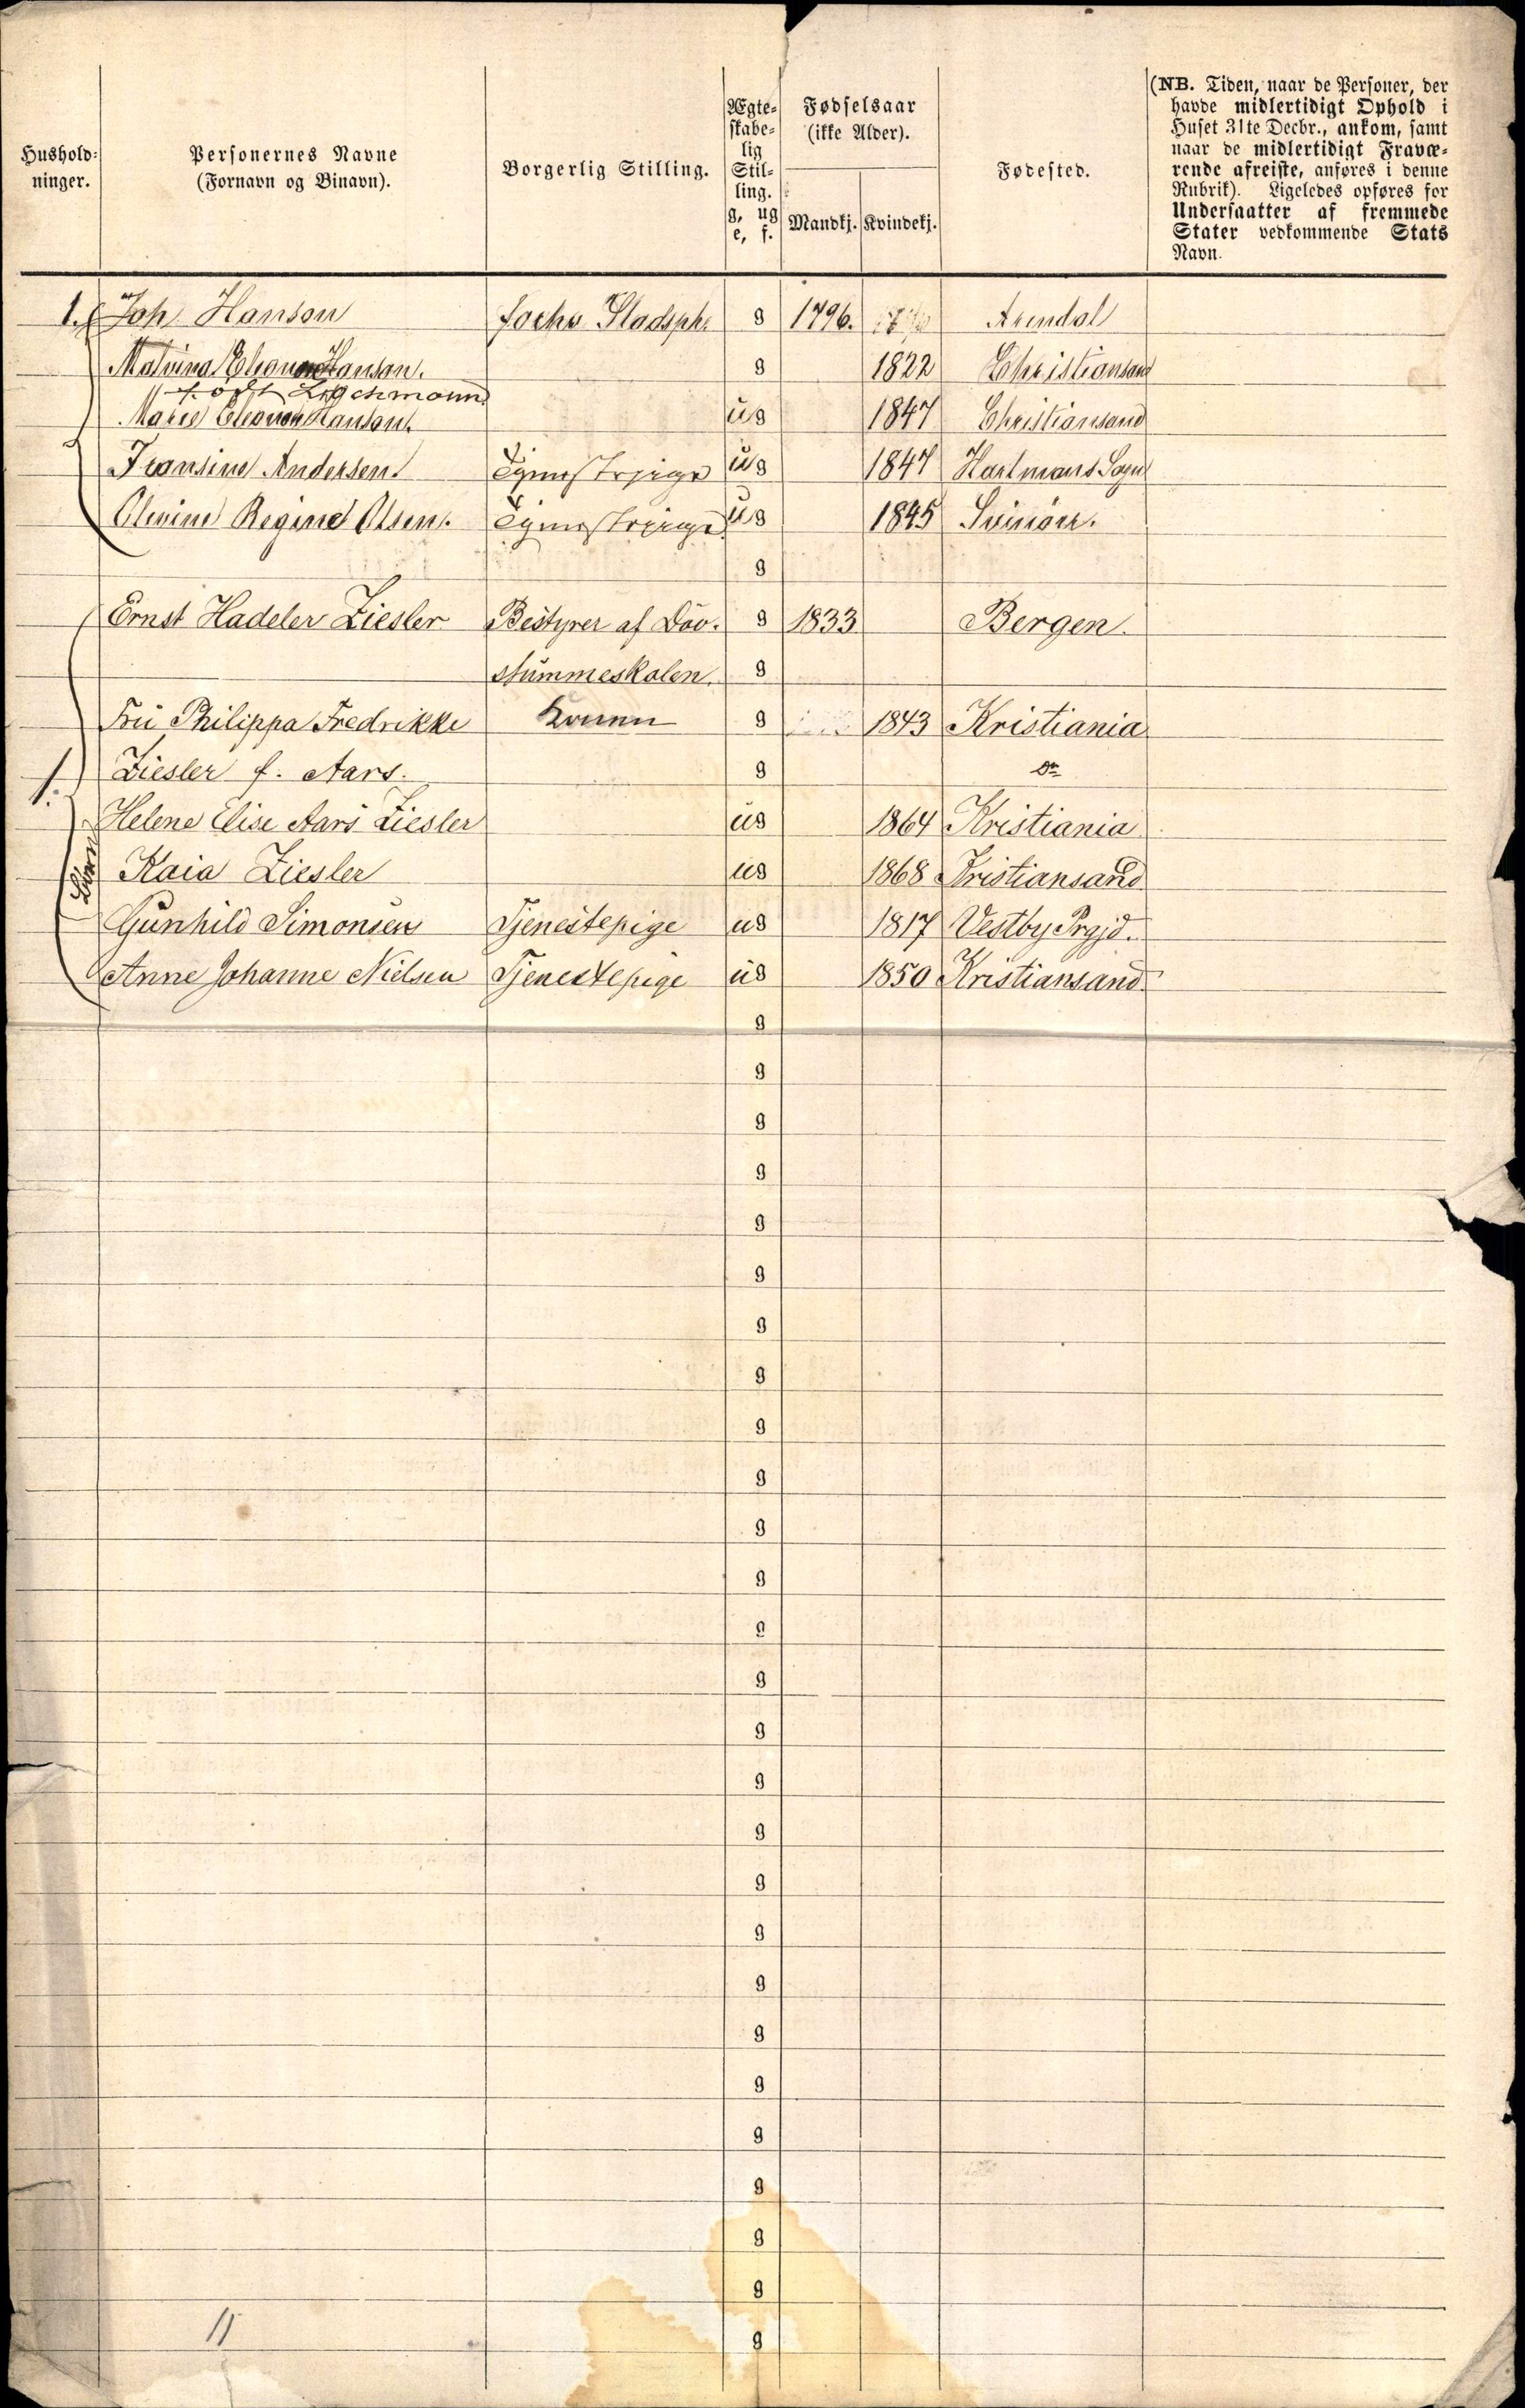 Hushold-
ninger.
Personernes Navne
(Fornavn og Binavn).
Borgerlig Stilling.
Ægte-
skabe-
lig
Stil-
ling.
g, ug
e, f.
Fødselsaar
(ikke Alder).
Mandkj. Kvindekj.
Fødested.
(NB. Tiden, naar de Personer, der
havde midlertidigt Ophold i
Huset 31te Decbr., ankom, samt
naar de midlertidigt Fravæ-
rende afreiste, anføres i denne
Rubrik). Ligeledes opføres for
Undersaatter af fremmede
Stater vedkommende Stats
Navn.
1. Joh Hanson g 1796. Arendal
Malvina Eleonora Hanson. g 1822 Christiansand
født
Marie Eleonora Hanson. ug 1847 Christiansand
Fransine Andersen. Tjenestepige ug 1847 Sogn
Olivine Regine Olsen. Tjenestepige ug 1845 Svinöer.
g
Ernst Hadeler Ziesler Bestyrer af Döv- g 1833 Bergen.
stummeskolen. g
Fru Philippa Fredrikke Konen g 1843 Kristiania
1. Ziesler f. Aars. g Do
Helene Elise Aars Ziesler ug 1864 Kristiania
Börn
Kaia Ziesler ug 1868 Kristiansand
Gunhild Simonsen Tjenestepige ug 1817 Vestby Prgjd.
Anne Johanne Nielsen Tjenestepige ug 1850 Kristiansand.
g
g
g
g
g
g
g
g
g
g
g
g
g
g
g
g
g
g
g
g
g
g
g
g
g
g
11 g